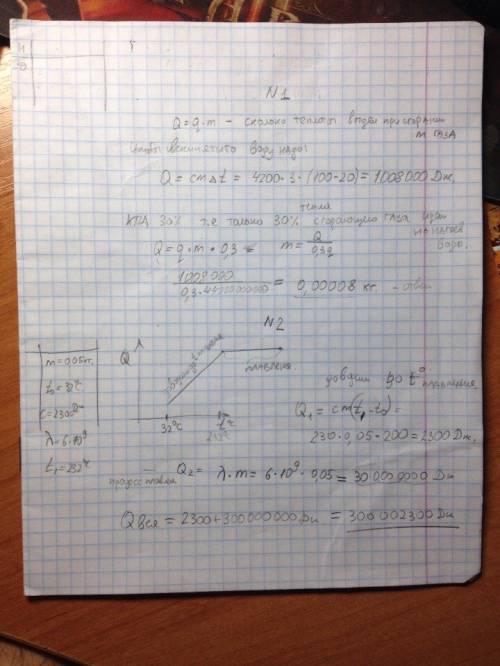 N1
Q = q·m – сколько теплоты выдел при сгорании
m газа
чтобы вскипятить воду надо:
Q = cmΔt = 4200·3·(100-20) = 1008000 Дж,
тепла
КПД 30% т.е только 30% сгорающего газа идёт
на нагрев
воды.
Q = q·m·0,3 m = Q/0,3q
1008000/0,3·44000000000 = 0,00008 кг - ответ
N2
m = 0,05 кг.
t₀ = 32°C
c = 230 Дж
λ = 6·10⁹
t₁ = 232°C
Q
плавление.
32°C
232°C
t°C
доводим до t° плавления
Q₁ = cm(t₁-t₀) =
230·0,05·200 = 2300 Дж,
процесс плавки
Q₂ = λ·m = 6·10⁹·0,05 = 30000 0000 Дж
Q вся = 2300 + 300000000 Дж = 300 002300 Дж